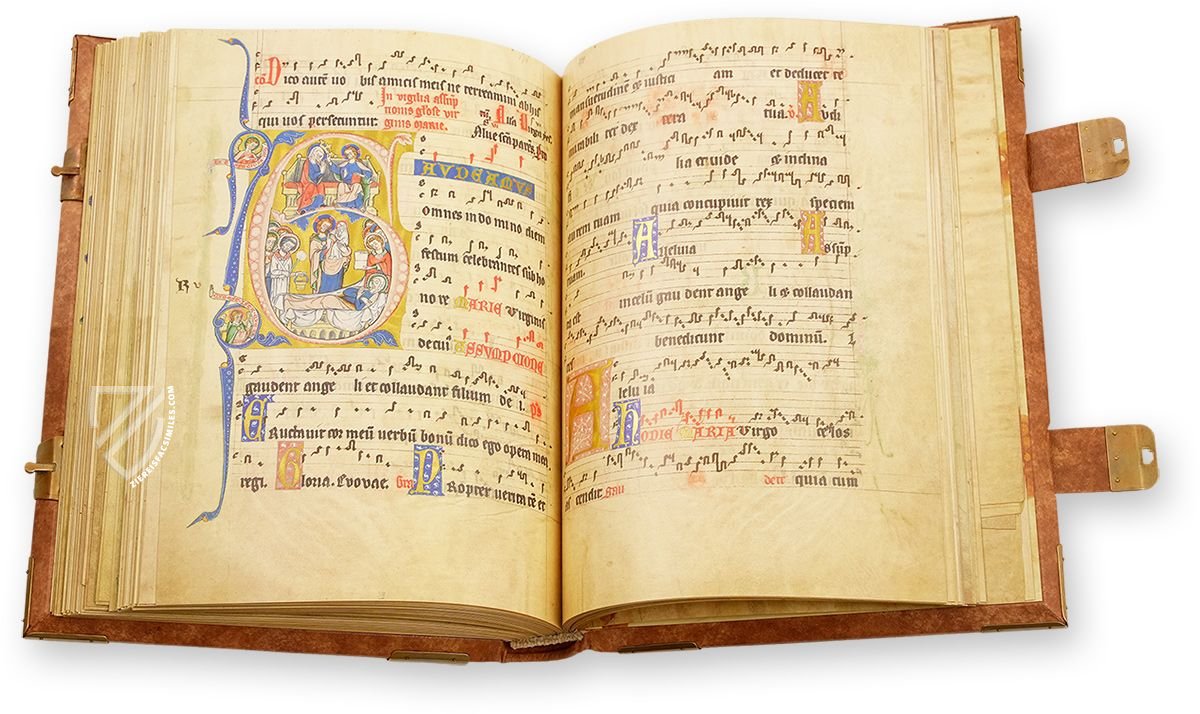 cõ Dico autē vo bis amicis meis ne terreamini ab his
qui uos persecuntur. In vigilia assup
tionis gl'ose vir
ginis marie.
Salue sc̃a parēs.
GAVDEAMVS
Omnes in domino diem
festum celebrantes sub ho
nore MARIE Virginis
de cuiꝰ ASSVMPCIONE
gaudent ange li et collaudant filium de i. ps
ERuctauit cor meū verbū bonū dico ego opera mea
regi. Gloria. Evovae. Gra PRopter veritatē et
mansuetudinē et iusticiam et deducet te
mirabiliter dextera tua. v. Audi
filia et uide et inclina
aurem tuam quia concupiuit rex speciem
tuam. Alleluia Assūp
ta est in celū gaudent angeli et collaudan
tes benedicunt dominū.
Alleluia
HODIE MARIA Virgo celos
ascendit gau dete quia cum
ZIEREISFACSIMILES.COM